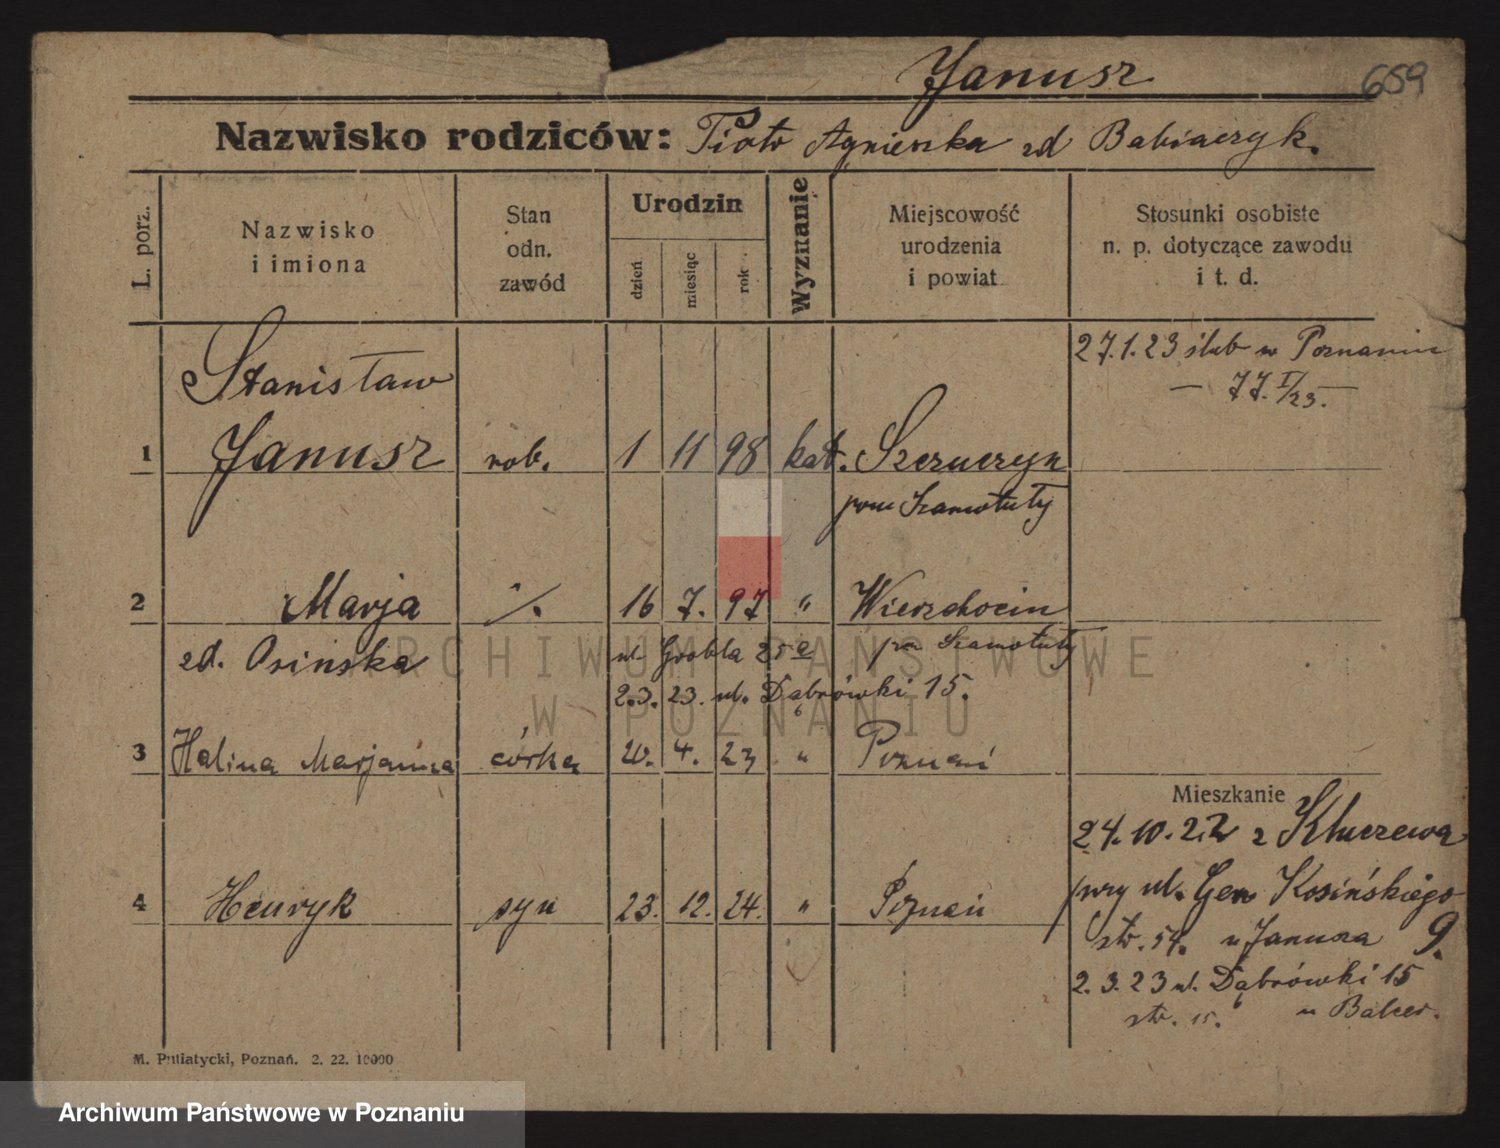 Janusz
659
Nazwisko rodziców: Piotr Agnieszka zd Babiaczyk.
L. porz.
Nazwisko
i imiona
Stan
odn.
zawód
Urodzin
dzień
miesiąc
rok
Wyznanie
Miejscowość
urodzenia
i powiat
Stosunki osobiste
n. p. dotyczące zawodu
i t. d.
27.1.23 ślub w Poznaniu
Stanisław
1 Janusz rob. 1 11 98 kat. Szczuczyn
pow Szamotuły
2 Marja 16 7. 97 " Wierzchocin
zd. Osinska ul. Grobla 25a Szamotuły
2.3.23. ul. Dąbrówki 15.
3 Halina Marjanna córka 20. 4. 23 " Poznań
4 Henryk syn 23. 12. 24. " Poznań
Mieszkanie
24.10.22 z Kluczewa
przy ul. Gen Kosińskiego
str. 54. u Janusza 9.
2.3.23 ul. Dąbrówki 15
str. 15. u Balcer.
M. Putiatycki, Poznań. 2. 22. 10000
ARCHIWUM PAŃSTWOWE
W POZNANIU
Archiwum Państwowe w Poznaniu